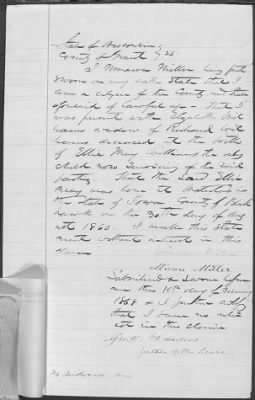 State of Wisconsin
County of Grant } ss.
I Munson Miller being first
sworn on my oath State that I
am a citizen of the County and State
aforesaid of lawful age - That I
was present with Elizabeth Wil
liams widow of Richard Wil
liams deceased at the birth
of Ellie May Williams the only
child now surviving of the said
parties That the said Ellie
May was born at Waterloo in
the State of Iowa County of Black
hawk on the 30th day of Aug
ust 1860. I make this State
ment without interest in this
Claim
Miller
Subscribed & Sworn before
me this 10th day of
1868 & I further certify
that I have no inte
rest in this claim
Justice of the Peace